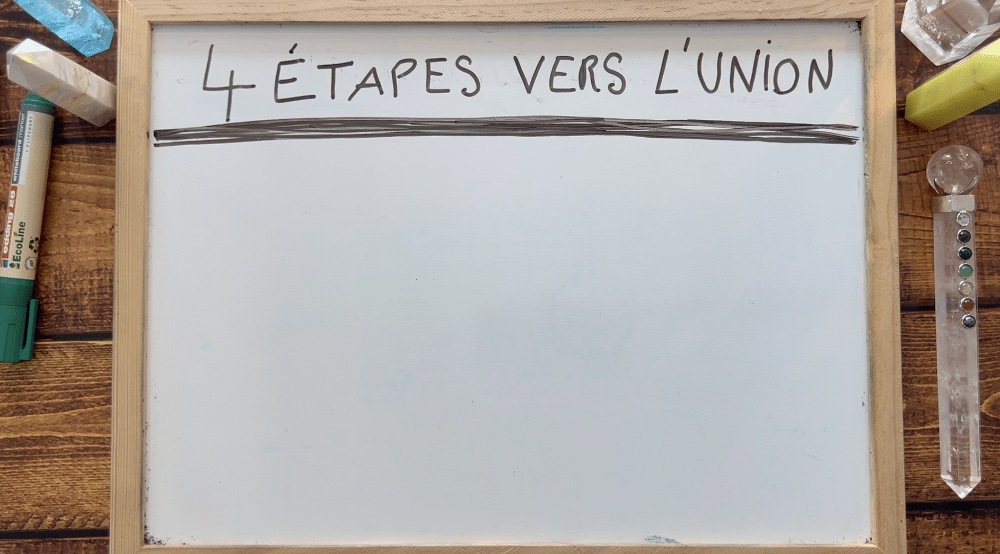 4 ÉTAPES VERS L'UNION
edding 28
EcoLine
whiteboard marker